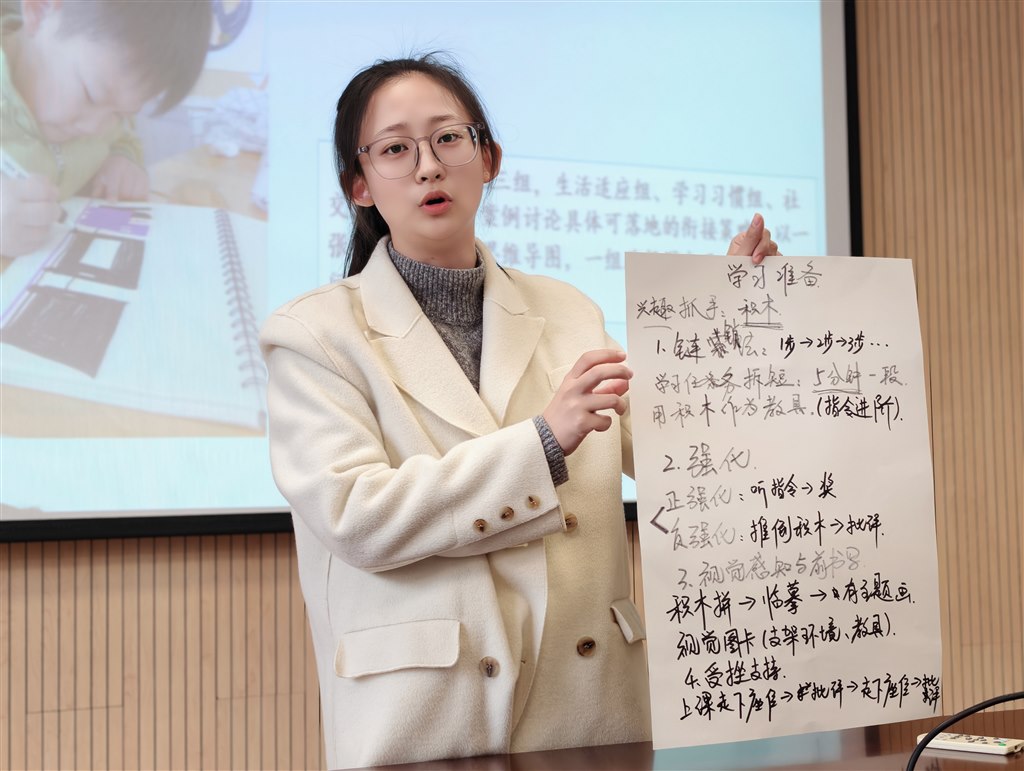 二组，生活适应组、学习习惯组、社
交
案例讨论具体可落地的衔接策
以一
张
思维导图，一组
学习准备
兴趣抓手：积木
1.链
法：1步→2步→3步…
学习任务拆短：5分钟一段.
用积木作为教具.(指令进阶).
2.强化.
正强化：听指令→奖
负强化：推倒积木→批评.
3.视觉感知与前书写
积木拼→临摹→有主题画.
视觉图卡(支架环境、教具).
4.受挫支持.
上课走下座位→批评→走下座位→批评